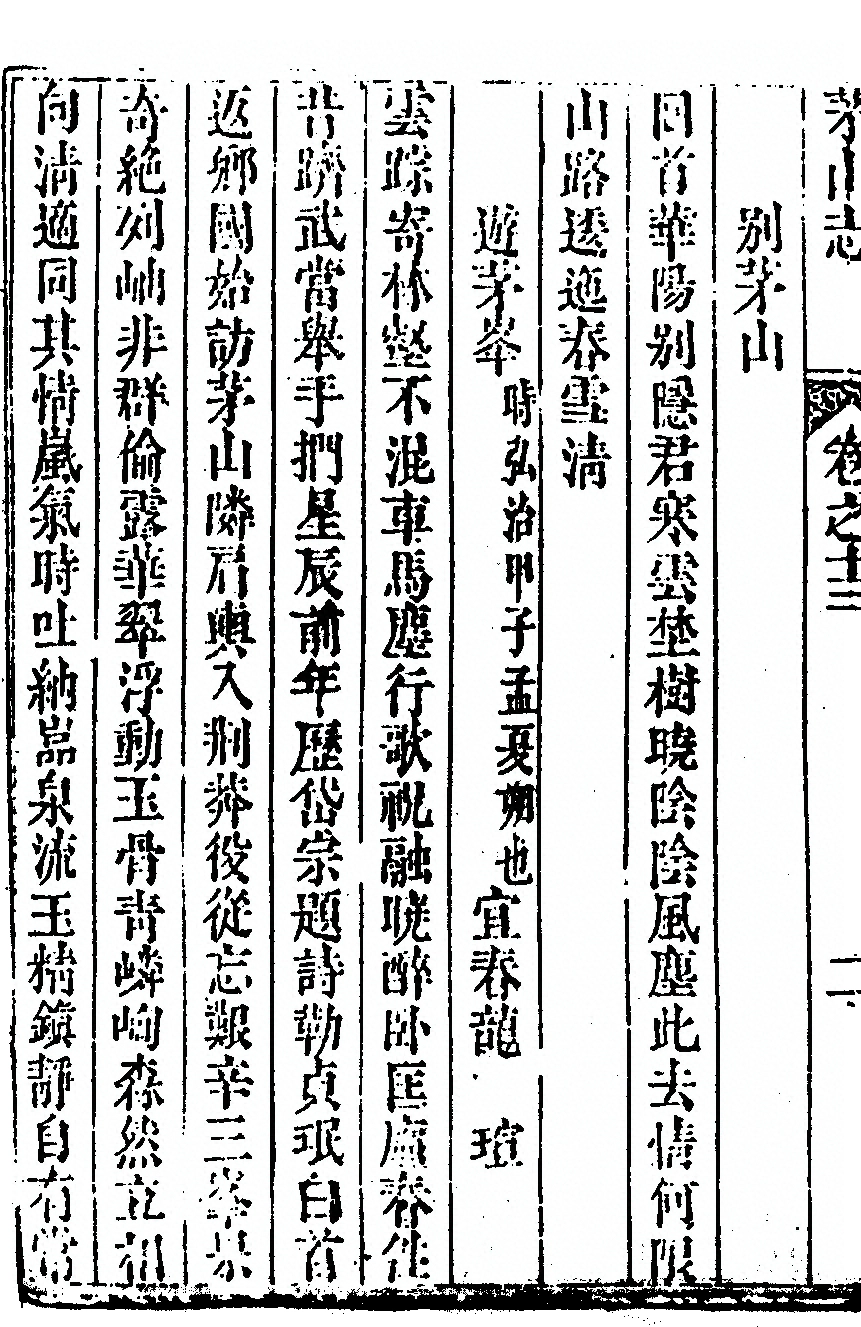 茅山志 卷之十三 二
別茅山
回首華陽別隱君寒雲埜樹曉陰陰風塵此去情何限
山路透迤春雪清
遊茅峯 時弘治甲子孟夏朔也 宜春龍 瑄
雲踪寄林壑不混車馬塵行歌祝融曉醉卧匡廬春往
昔躋武當舉手捫星辰前年歷岱宗題詩勒貞珉白首
返鄉國始訪茅山隣肩輿入荆莽役從忘艱辛三峯果
奇絶列岫非群倫露華翠浮動玉骨青嶙峋森然立相
向清適同其情嵐氣時吐納品泉流玉精鎮靜自有常